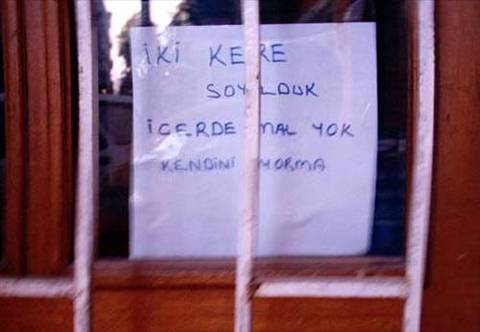 İKİ KERE
SOYULDUK
İCERDE MAL YOK
KENDİNİ YORMA